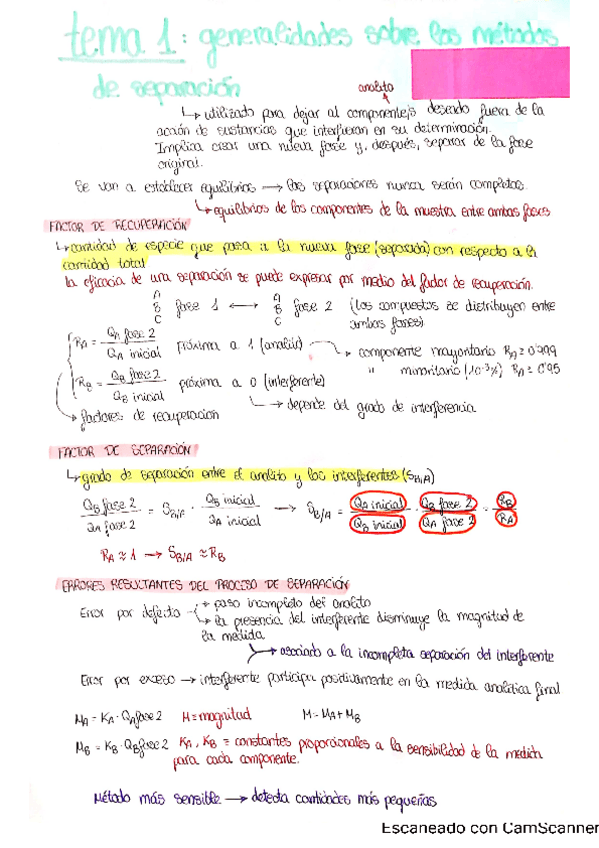 tema 1: generalidades sobre los métodos
de separación
analito
↳ utilizado para dejar al componente/s deseado fuera de la
acción de sustancias que interfieran en su determinación.
Implica crear una nueva fase y, después, separar de la fase
original.
Se van a establecer equilibrios → las separaciones nunca serán completas.
↳ equilibrios de los componentes de la muestra entre ambas fases
FACTOR DE RECUPERACIÓN
↳ cantidad de especie que pasa a la nueva fase (separada) con respecto a la
cantidad total
la eficacia de una separación se puede expresar por medio del factor de recuperación.
A B C fase 1 ⟷ A B C fase 2 (los compuestos se distribuyen entre
ambas fases)
RA = QA fase 2 / QA inicial próxima a 1 (analito) → componente mayoritario RA ≥ 0'999
" minoritario (10⁻³%) RA ≥ 0'95
RB = QB fase 2 / QB inicial próxima a 0 (interferente)
↳ depende del grado de interferencia
factores de recuperación
FACTOR DE SEPARACIÓN
↳ grado de separación entre el analito y los interferentes (SB/A)
QB fase 2 / QA fase 2 = SB/A · QB inicial / QA inicial → SB/A = QA inicial / QB inicial · QB fase 2 / QA fase 2 = RB / RA
RA ≈ 1 → SB/A ≈ RB
ERRORES RESULTANTES DEL PROCESO DE SEPARACIÓN
Error por defecto → paso incompleto del analito
→ la presencia del interferente disminuye la magnitud de
la medida
→ asociado a la incompleta separación del interferente
Error por exceso → interferente participa positivamente en la medida analítica final
MA = KA · QA fase 2 M = magnitud M = MA + MB
MB = KB · QB fase 2 KA, KB = constantes proporcionales a la sensibilidad de la medida
para cada componente.
Método más sensible → detecta cantidades más pequeñas
Escaneado con CamScanner